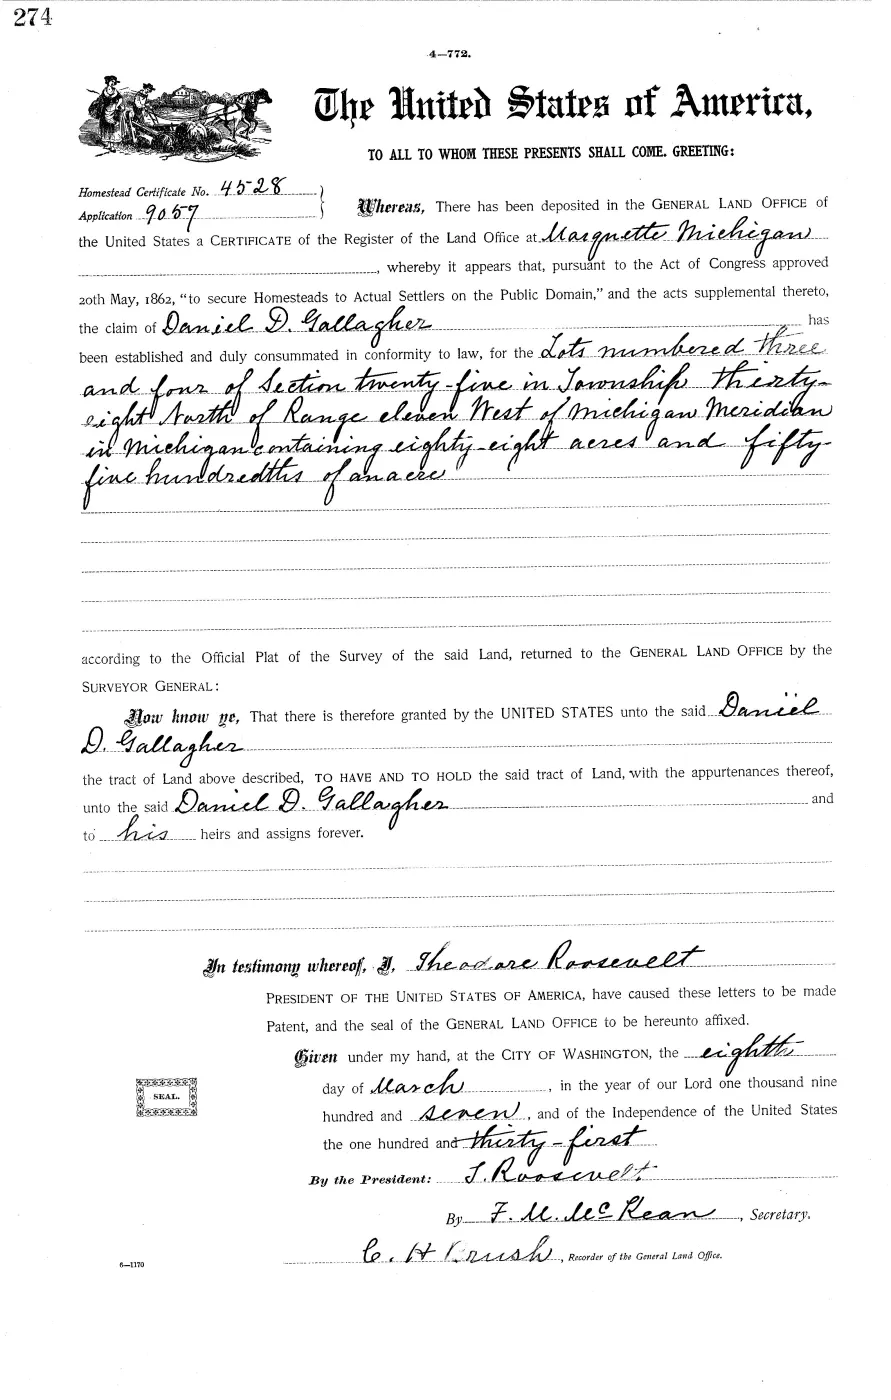 274
4—772.
The United States of America,
TO ALL TO WHOM THESE PRESENTS SHALL COME, GREETING:
Homestead Certificate No. 4528
Application 9057
Whereas, There has been deposited in the GENERAL LAND OFFICE of
the United States a CERTIFICATE of the Register of the Land Office at Marquette Michigan
, whereby it appears that, pursuant to the Act of Congress approved
20th May, 1862, "to secure Homesteads to Actual Settlers on the Public Domain," and the acts supplemental thereto,
the claim of Daniel D. Gallagher has
been established and duly consummated in conformity to law, for the Lots numbered three
and four of Section twenty-five in Township thirty-
eight North of Range eleven West of Michigan Meridian
in Michigan containing eighty-eight acres and fifty-
five hundredths of an acre
according to the Official Plat of the Survey of the said Land, returned to the GENERAL LAND OFFICE by the
SURVEYOR GENERAL:
Now know ye, That there is therefore granted by the UNITED STATES unto the said Daniel
D. Gallagher
the tract of Land above described, TO HAVE AND TO HOLD the said tract of Land, with the appurtenances thereof,
unto the said Daniel D. Gallagher and
to his heirs and assigns forever.
In testimony whereof, I, Theodore Roosevelt
PRESIDENT OF THE UNITED STATES OF AMERICA, have caused these letters to be made
Patent, and the seal of the GENERAL LAND OFFICE to be hereunto affixed.
Given under my hand, at the CITY OF WASHINGTON, the eighth
day of March, in the year of our Lord one thousand nine
hundred and seven, and of the Independence of the United States
the one hundred and thirty-first
SEAL.
By the President: T. Roosevelt
By F. M. McKean, Secretary.
C. H. Brush, Recorder of the General Land Office.
6—1170